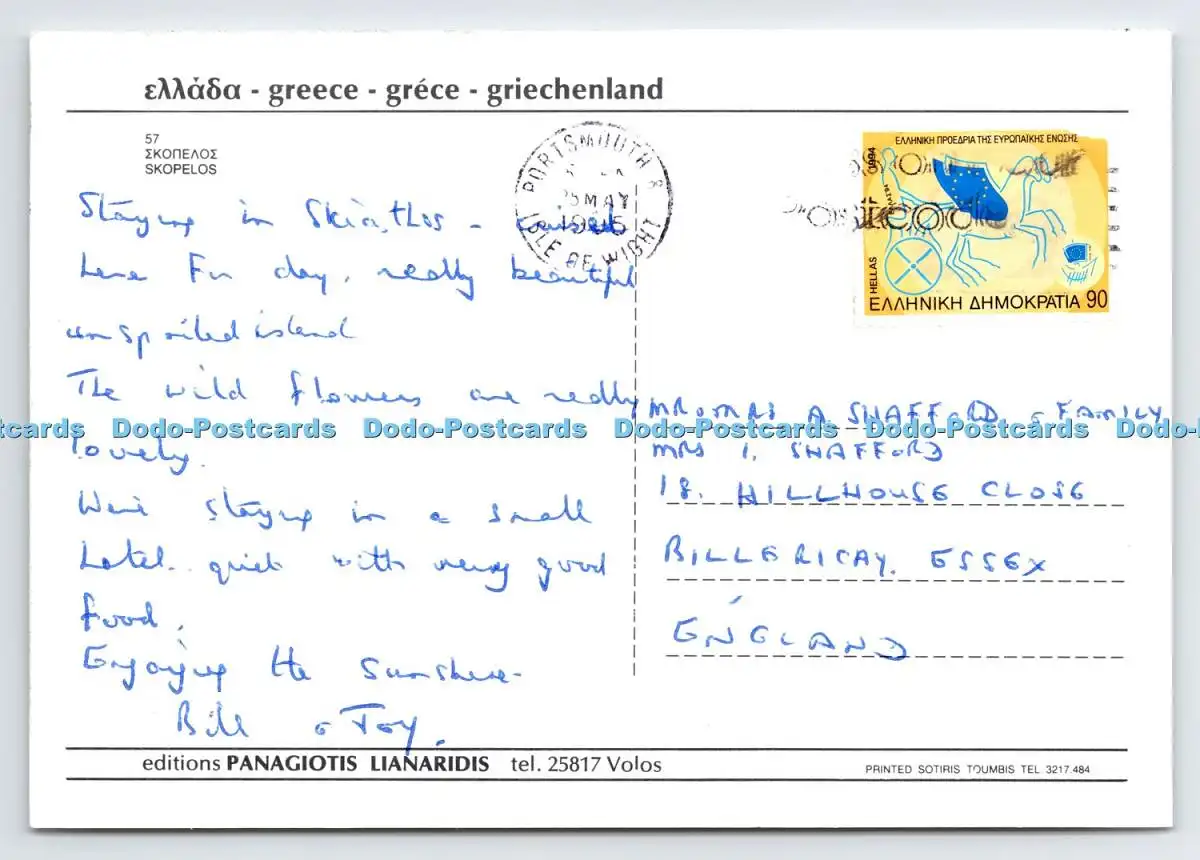 ελλάδα - greece - gréce - griechenland
57
ΣΚΟΠΕΛΟΣ
SKOPELOS
PORTSMOUTH &
MAY
1995
ISLE OF WIGHT
ΕΛΛΗΝΙΚΗ ΠΡΟΕΔΡΙΑ ΤΗΣ ΕΥΡΩΠΑΪΚΗΣ ΕΝΩΣΗΣ
1994
HELLAS
ΕΛΛΗΝΙΚΗ ΔΗΜΟΚΡΑΤΙΑ 90
Staying in Skiathos - cruised
here for day, really beautiful
unspoiled island
The wild flowers are really
lovely.
We're staying in a small
hotel.. quiet with very good
food.
Enjoying the sunshine-
Bill & Joy.
MR & MRS A SHAFFORD & FAMILY
MRS I. SHAFFORD
18. HILLHOUSE CLOSE
BILLERICAY. ESSEX
ENGLAND
Dodo-Postcards Dodo-Postcards Dodo-Postcards Dodo-Postcards
editions PANAGIOTIS LIANARIDIS tel. 25817 Volos
PRINTED SOTIRIS TOUMBIS TEL 3217.484